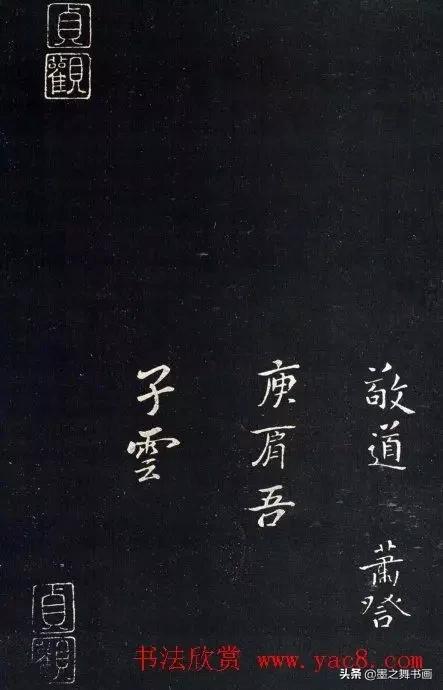 敬道
蕭
庾肩吾
子雲
貞觀
貞觀
书法欣赏 www.yac8.com
头条 @墨之舞书画